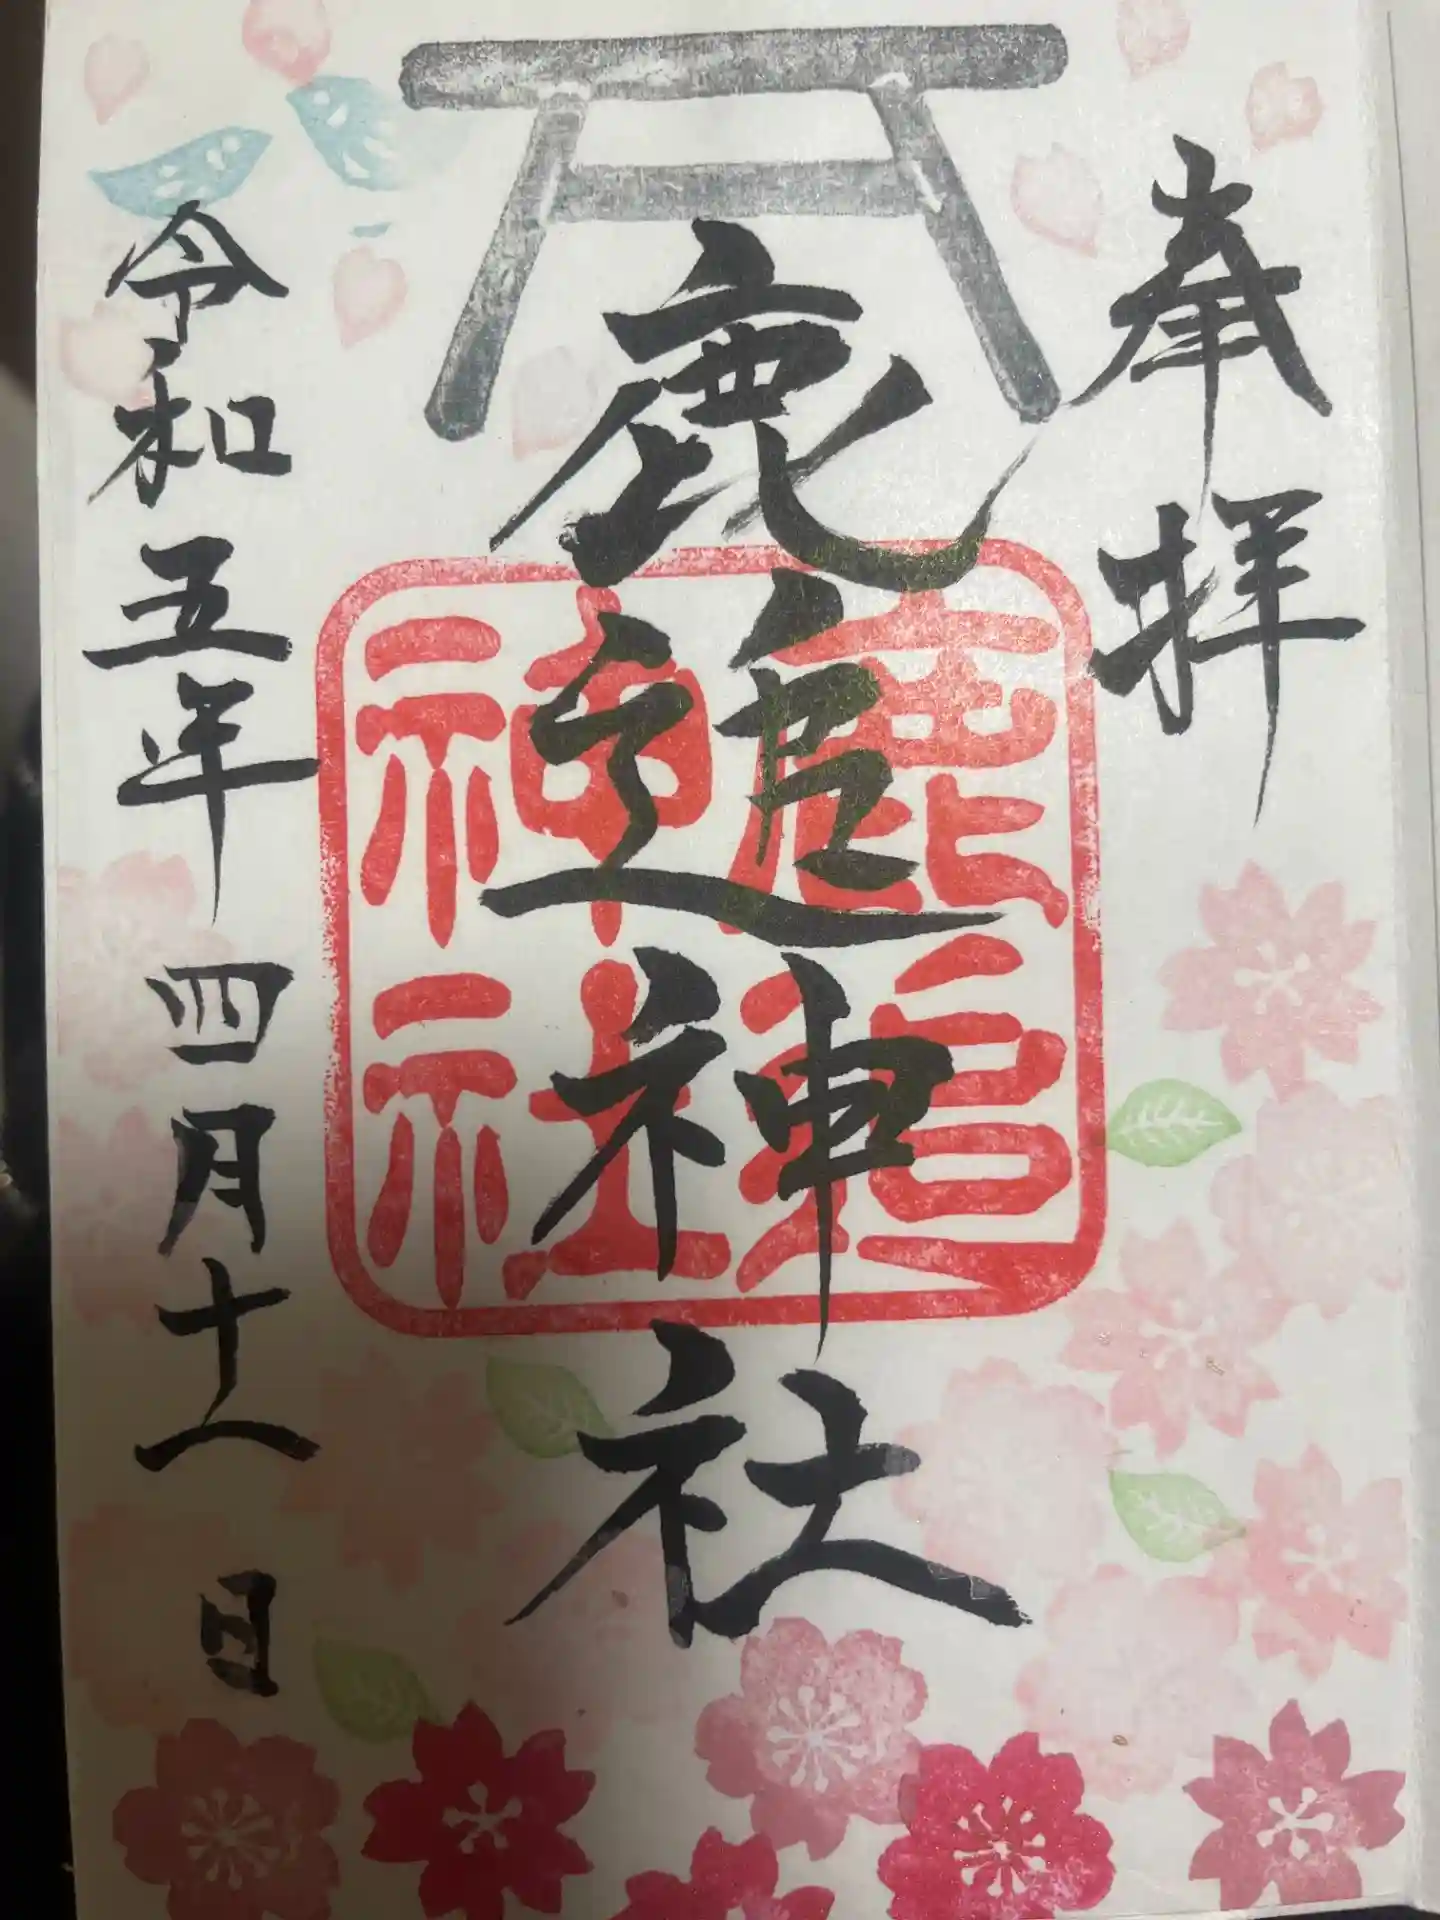 奉拝
鹿追神社
鹿追
神社
令和五年四月十八日